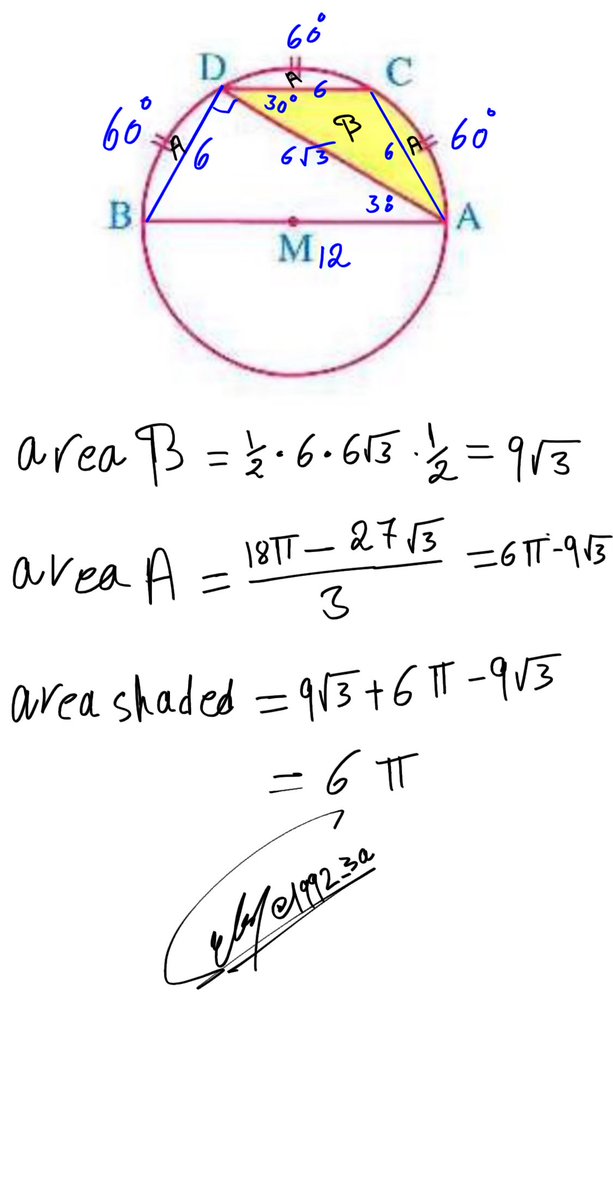 60°
D A C
30° 6
60° A 6 B A 60°
6√3 6
30
B A
M 12
area B = 1/2 · 6 · 6√3 · 1/2 = 9√3
area A = 18π - 27√3 / 3 = 6π - 9√3
area shaded = 9√3 + 6π - 9√3
= 6π
@1992_3a